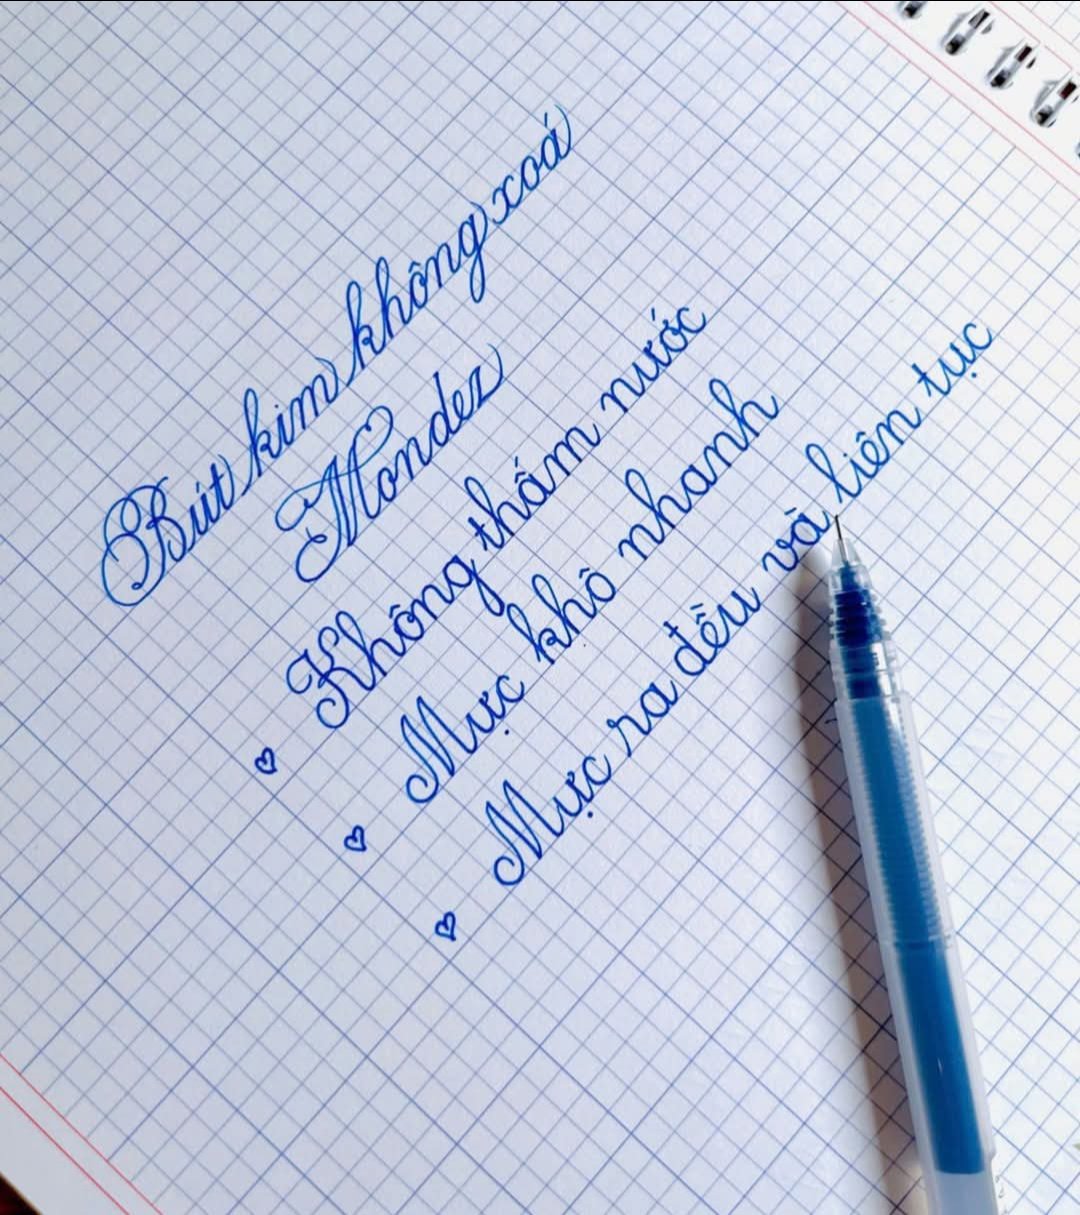 Bút kim không xoá
Mondez
♡ Không thấm nước
♡ Mực khô nhanh
♡ Mực ra đều và liên tục